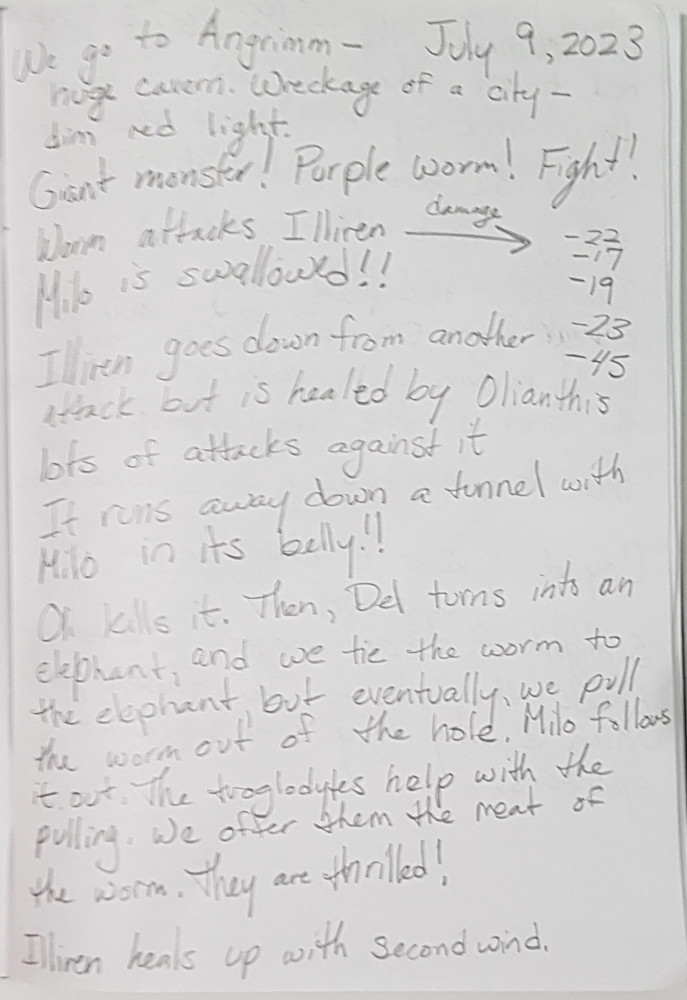 We go to Angrimm - July 9, 2023
huge cavern. Wreckage of a city -
dim red light.
Giant monster! Purple worm! Fight!
damage
Worm attacks Illiren → -22
-17
Milo is swallowed!! -19
Illiren goes down from another -23
-45
attack but is healed by Olianthis
lots of attacks against it
It runs away down a tunnel with
Milo in its belly!!
Oli kills it. Then, Del turns into an
elephant, and we tie the worm to
the elephant, but eventually, we pull
the worm out of the hole. Milo follows
it out. The troglodytes help with the
pulling. We offer them the meat of
the worm. They are thrilled!
Illiren heals up with second wind.